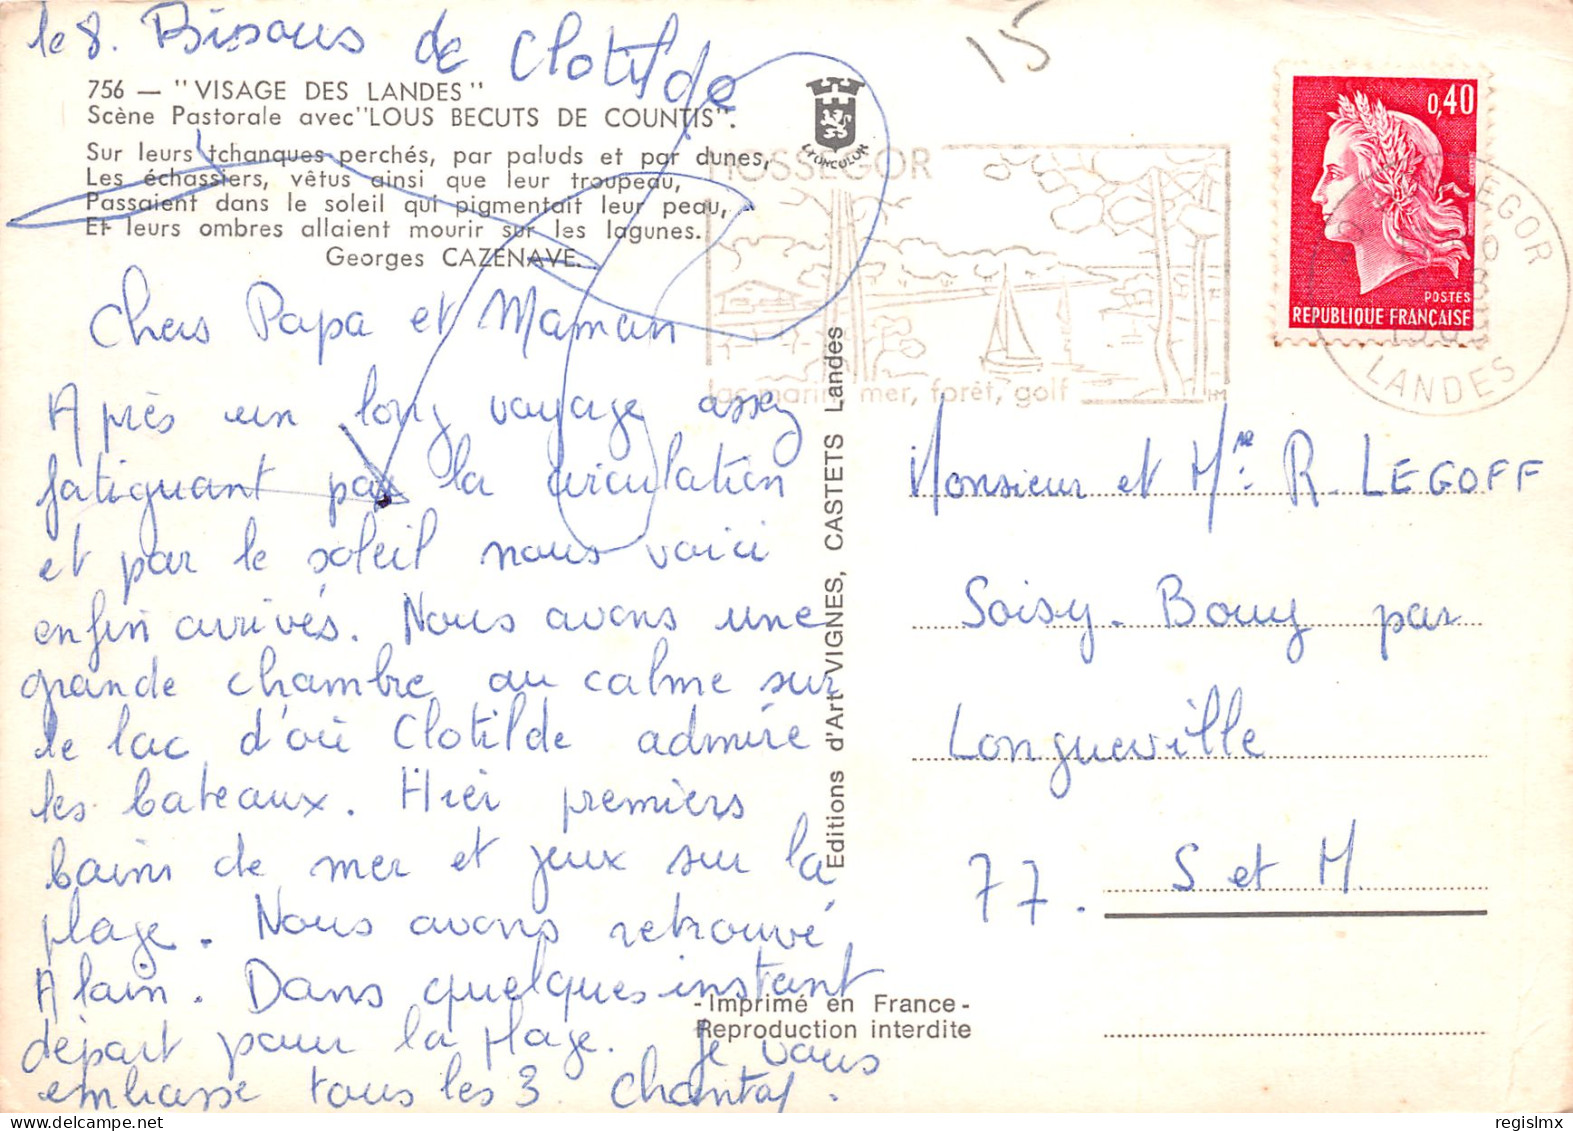 le 8. Bisous de Clotilde
15
756 — "VISAGE DES LANDES"
Scène Pastorale avec "LOUS BECUTS DE COUNTIS".
Sur leurs tchanques perchés, par paluds et par dunes,
Les échassiers, vêtus ainsi que leur troupeau,
Passaient dans le soleil qui pigmentait leur peau,
Et leurs ombres allaient mourir sur les lagunes.
Georges CAZENAVE.
Chers Papa et Maman
Après un long voyage assez
fatiguant par la circulation
et par le soleil nous voici
enfin arrivés. Nous avons une
grande chambre au calme sur
le lac d'où Clotilde admire
les bateaux. Hier premiers
bains de mer et jeux sur la
plage. Nous avons retrouvé
Alain. Dans quelques instant
départ pour la plage. Je vous
embrasse tous les 3. Chantal.
LYONCOLOR
HOSSEGOR
lac marin, mer, forêt, golf
0,40
POSTES
REPUBLIQUE FRANÇAISE
LANDES
Editions d'Art VIGNES, CASTETS Landes
Monsieur et Mme R. LEGOFF
Soisy-Bouy par
Longueville
77. S et M.
-Imprimé en France-
Reproduction interdite
regislmx